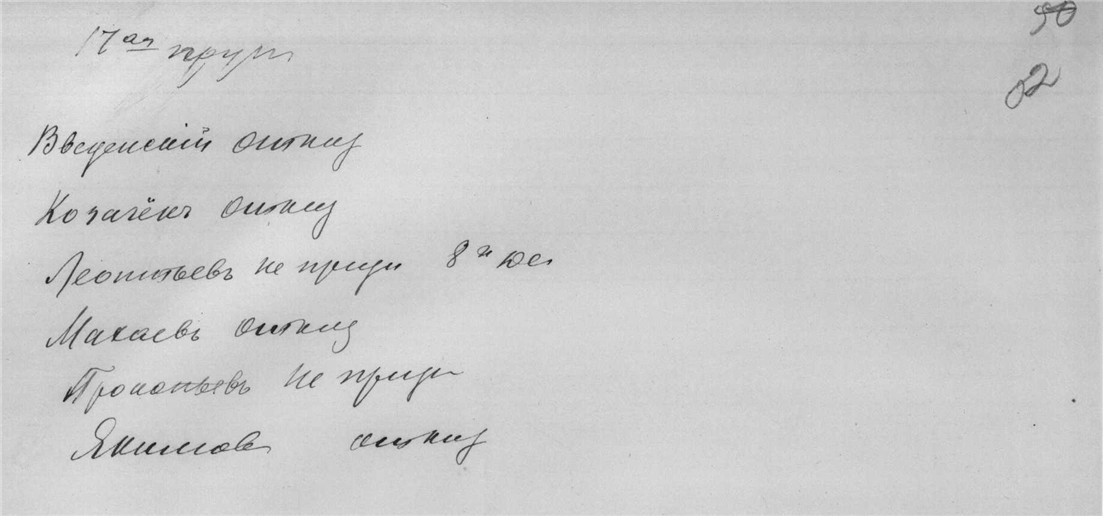 50
62
17ая групп
Введенскій отказ
Козачёкъ отказ
Леонтьевъ не приди 8й
Макаевъ отказ
Прокопьевъ не приди
Якимовъ отказ